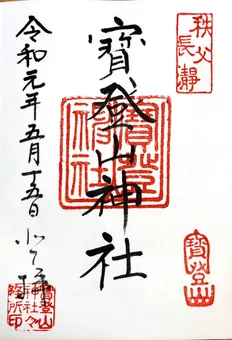 秩父
長瀞
寳登山
寳登山神社
令和元年五月十五日
寳登山
神社々
務所印